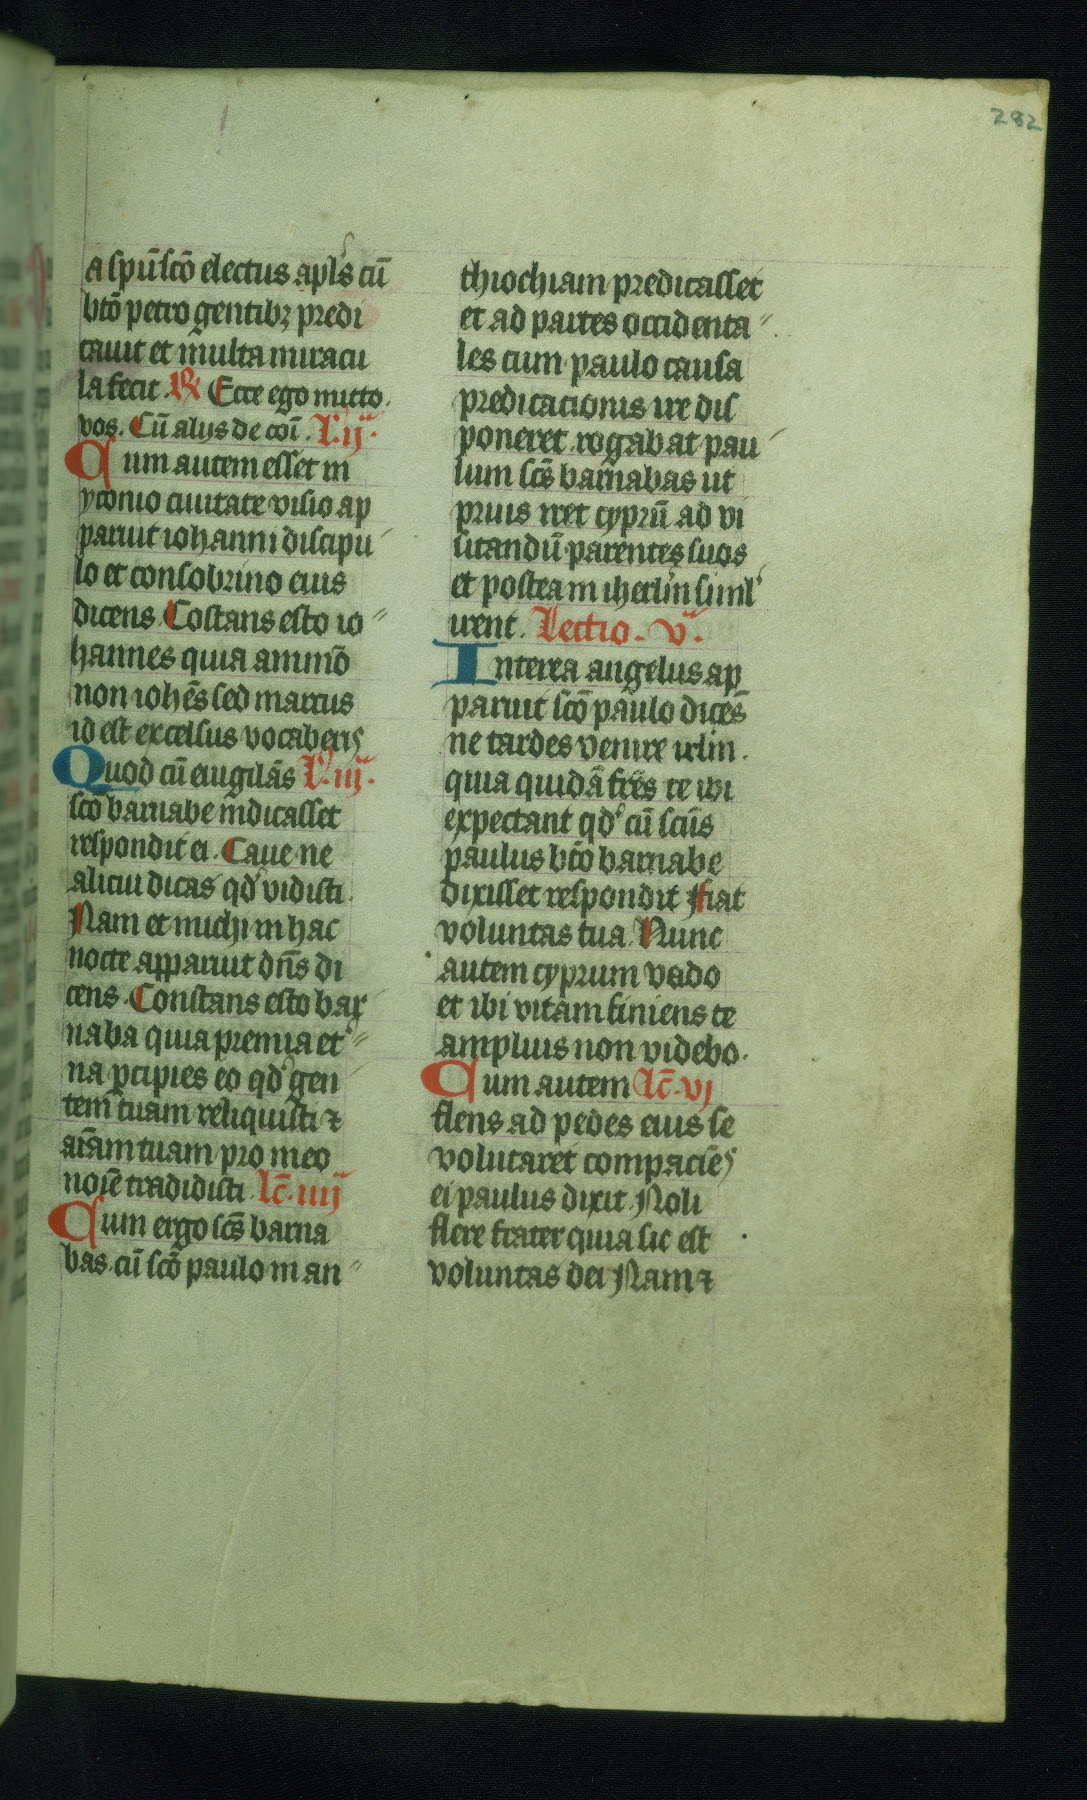 282
a spū scō electus apl's cū
btō petro gentibꝫ predi
cauit et multa miracu
la fecit. ℟ Ecce ego mitto.
vos. Cū alijs de coī. L'. ij.
Cum autem esset in
yconio ciuitate visio ap
paruit iohanni discipu
lo et consobrino eius
dicens. Costans esto io
hannes quia ammō
non iohēs sed marcus
id est excelsus vocaberis
Quod cū euigilās L'. iij.
scō barnabe indicasset
respondit ei. Caue ne
alicui dicas qd' vidisti.
Nam et michi in hac
nocte apparuit dn̄s di
cens. Constans esto bar
naba quia premia et
na ꝑcipies eo qd' gen
tem tuam reliquisti ⁊
aīam tuam pro meo
noīe tradidisti. lc̄. iiij
Cum ergo scs̄ barna
bas. cū scō paulo in an
thiochiam predicasset
et ad partes occidenta
les cum paulo causa
predicacionis ire dis
poneret. rogabat pau
lum scs̄ barnabas ut
prius iret cyprū ad vi
sitandū parentes suos
et postea in iherlm̄ siml'
irent. Lectio. v.
Interea angelus ap
paruit scō paulo dicēs
ne tardes venire irlm.
quia quidā fr̄es te ibi
expectant qd' cū scūs
paulus btō barnabe
dixisset respondit Fiat
voluntas tua. Nunc
autem cyprum vado
et ibi vitam finiens te
amplius non videbo.
Cum autem lc̄. vj
flens ad pedes eius se
volutaret compaciēs
ei paulus dixit. Noli
flere frater quia sic est
voluntas dei Nam ⁊